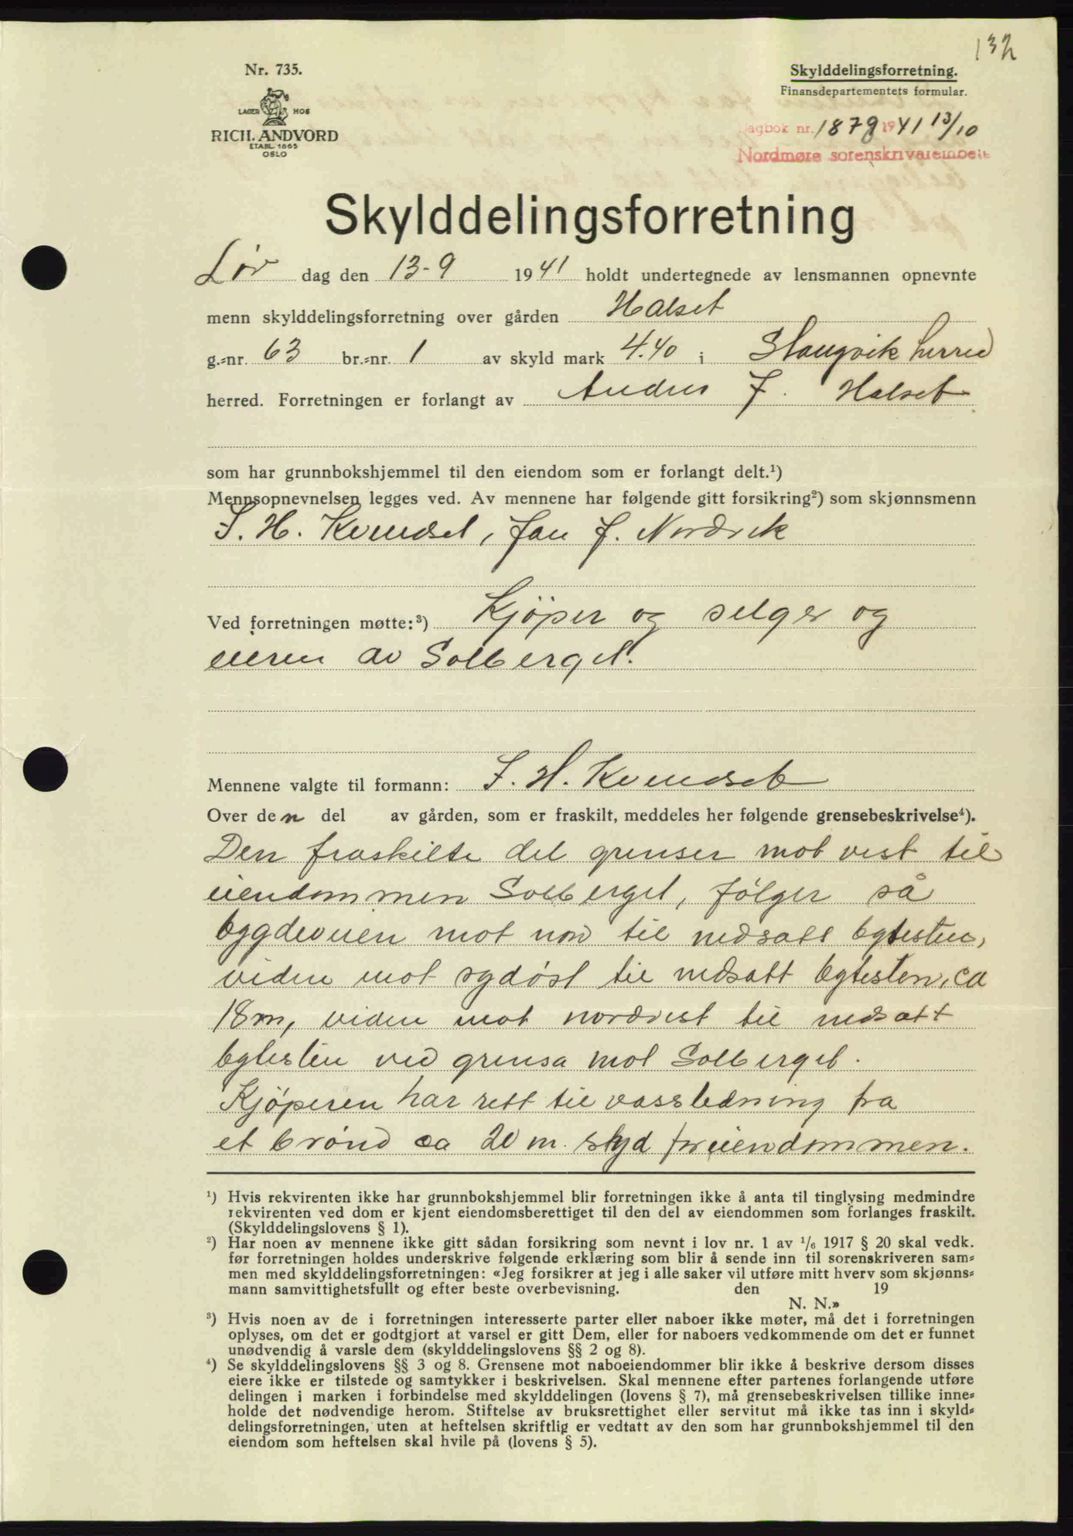 132
Nr. 735.
LAGER HOS
RICH. ANDVORD
ETABL. 1865
OSLO
Skylddelingsforretning.
Finansdepartementets formular.
agbok nr. 1879 1941 13/10
Nordmøre sorenskriverembete
Skylddelingsforretning
Lør dag den 13-9 1941 holdt undertegnede av lensmannen opnevnte
menn skylddelingsforretning over gården Halset
g.-nr. 63 br.-nr. 1 av skyld mark 4.40 i Stangvik herred
herred. Forretningen er forlangt av Anders J. Halset
som har grunnbokshjemmel til den eiendom som er forlangt delt.¹)
Mennsopnevnelsen legges ved. Av mennene har følgende gitt forsikring²) som skjønnsmenn
S. H. Kvendset, Jan J. Nordvik
Ved forretningen møtte:³) Kjöper og selger og
eieren av Solberget.
Mennene valgte til formann: S. H. Kvendset
Over den del av gården, som er fraskilt, meddeles her følgende grensebeskrivelse⁴).
Den fraskilte del grenser mot vest til
eiendommen Solberget, følger så
bygdeveien mot nord til nedsatt bytesten,
viden mot sydöst til nedsatt bytesten, ca
18m, viden mot nordvest til nedsatt
bytesten ved grensa mot Solberget.
Kjöperen har rett til vassledning fra
et brönd ca 20 m. syd for eiendommen.
¹) Hvis rekvirenten ikke har grunnbokshjemmel blir forretningen ikke å anta til tinglysing medmindre
rekvirenten ved dom er kjent eiendomsberettiget til den del av eiendommen som forlanges fraskilt.
(Skylddelingslovens § 1).
²) Har noen av mennene ikke gitt sådan forsikring som nevnt i lov nr. 1 av ¹/₆ 1917 § 20 skal vedk.
før forretningen holdes underskrive følgende erklæring som blir å sende inn til sorenskriveren sam-
men med skylddelingsforretningen: «Jeg forsikrer at jeg i alle saker vil utføre mitt hverv som skjønns-
mann samvittighetsfullt og efter beste overbevisning. den 19
N. N.»
³) Hvis noen av de i forretningen interesserte parter eller naboer ikke møter, må det i forretningen
oplyses, om det er godtgjort at varsel er gitt Dem, eller for naboers vedkommende om det er funnet
unødvendig å varsle dem (skylddelingslovens §§ 2 og 8).
⁴) Se skylddelingslovens §§ 3 og 8. Grensene mot naboeiendommer blir ikke å beskrive dersom disses
eiere ikke er tilstede og samtykker i beskrivelsen. Skal mennene efter partenes forlangende utføre
delingen i marken i forbindelse med skylddelingen (lovens § 7), må grensebeskrivelsen tillike inne-
holde det nødvendige herom. Stiftelse av bruksrettighet eller servitut må ikke tas inn i skyld-
delingsforretningen, uten at heftelsen skriftlig er vedtatt av den som har grunnbokshjemmel til den
eiendom som heftelsen skal hvile på (lovens § 5).